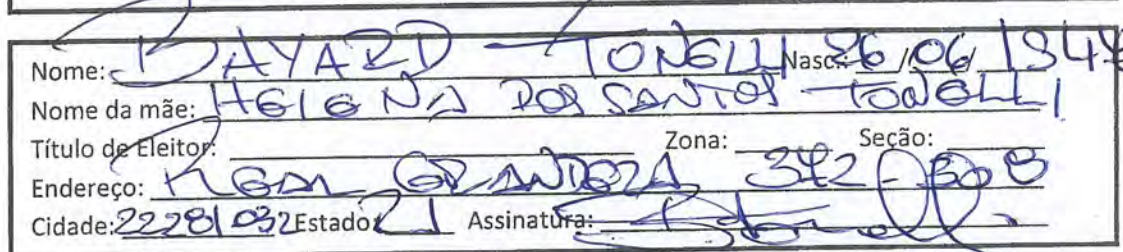 Nome: BAYARD TONELLI Nasc.: 26/06/194
Nome da mãe: HELENA DOS SANTOS TONELLI
Título de Eleitor: Zona: Seção:
Endereço: REAL GRANDEZA 372
Cidade: 22281 032 Estado: RJ Assinatura: